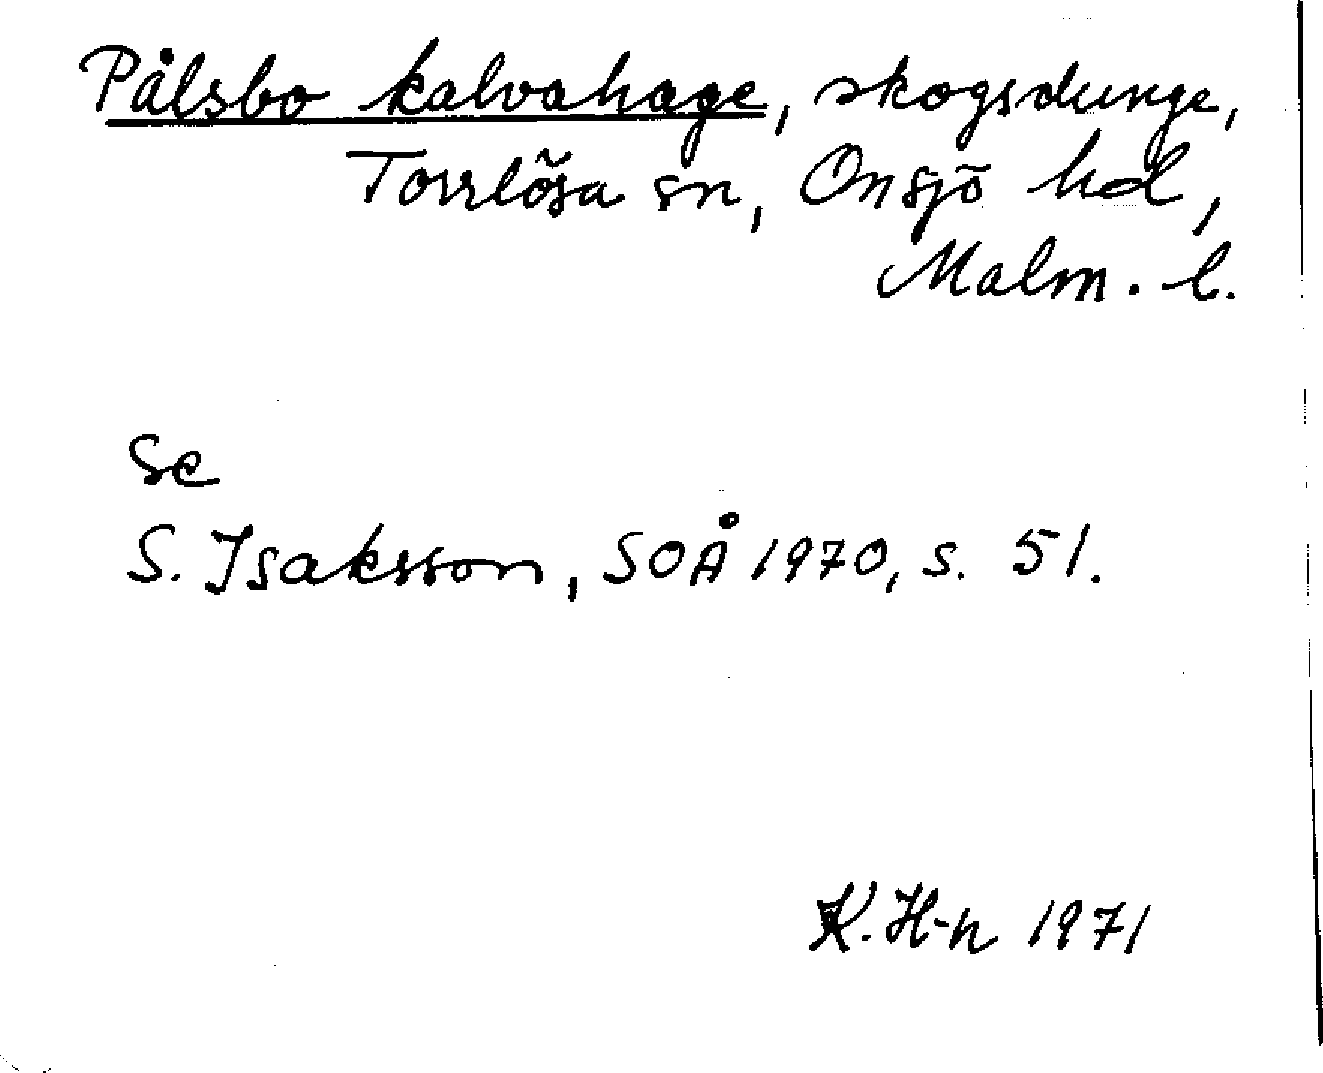 Pålsbo kalvahage, skogsdunge,
Torrlösa sn, Onsjö hd,
Malm. l.
Se
S. Isaksson, SOÅ 1970, s. 51.
K. H-n 1971